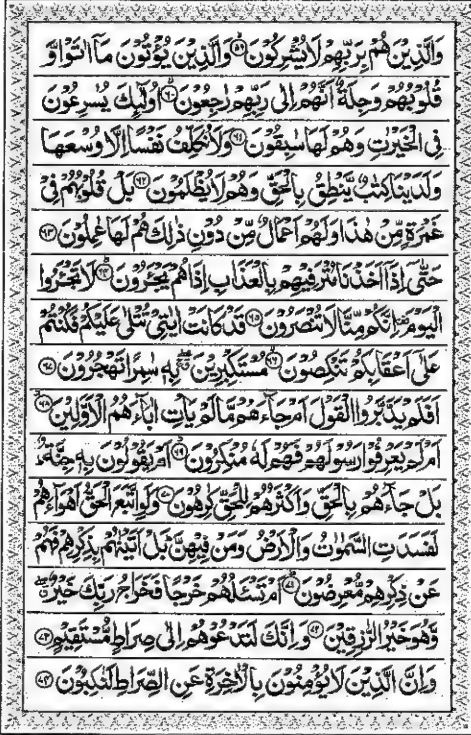 وَالَّذِيۡنَ هُمۡ بِرَبِّهِمۡ لَا يُشۡرِكُوۡنَ ۙ‏﴿۵۹﴾ وَالَّذِيۡنَ يُؤۡتُوۡنَ مَاۤ اٰتَوْا وَّ
قُلُوۡبُهُمۡ وَجِلَةٌ اَنَّهُمۡ اِلٰى رَبِّهِمۡ رٰجِعُوۡنَ ۙ‏﴿۶۰﴾ اُولٰٓٮِٕكَ يُسَارِعُوۡنَ
فِى الۡخَيۡـرٰتِ وَهُمۡ لَهَا سٰبِقُوۡنَ‏ ﴿۶۱﴾ وَلَا نُـكَلِّفُ نَفۡسًا اِلَّا وُسۡعَهَا
وَلَدَيۡنَا كِتٰبٌ يَّـنۡطِقُ بِالۡحَـقِّ وَهُمۡ لَا يُظۡلَمُوۡنَ‏ ﴿۶۲﴾ بَلۡ قُلُوۡبُهُمۡ فِىۡ
غَمۡرَةٍ مِّنۡ هٰذَا وَلَهُمۡ اَعۡمَالٌ مِّنۡ دُوۡنِ ذٰلِكَ هُمۡ لَهَا عٰمِلُوۡنَ‏ ﴿۶۳﴾
حَتّٰٓى اِذَاۤ اَخَذۡنَا مُتۡـرَفِيۡهِمۡ بِالۡعَذَابِ اِذَا هُمۡ يَجْـَٔـرُوۡنَ ؕ‏﴿۶۴﴾ لَا تَجْـَٔـرُوا
الۡيَوۡمَ‌ اِنَّكُمۡ مِّنَّا لَا تُنۡصَرُوۡنَ‏ ﴿۶۵﴾ قَدۡ كَانَتۡ اٰيٰتِىۡ تُتۡلٰى عَلَيۡكُمۡ فَـكُنۡتُمۡ
عَلٰٓى اَعۡقَابِكُمۡ تَـنۡكِصُوۡنَۙ‏ ﴿۶۶﴾ مُسۡتَكۡبِرِيۡنَ ‌ بِهٖ سٰمِرًا تَهۡجُرُوۡنَ‏ ﴿۶۷﴾
اَفَلَمۡ يَدَّبَّرُوا الۡقَوۡلَ اَمۡ جَآءَهُمۡ مَّا لَمۡ يَاۡتِ اٰبَآءَهُمُ الۡاَوَّلِيۡنَ‏ ﴿۶۸﴾
اَمۡ لَمۡ يَعۡرِفُوۡا رَسُوۡلَهُمۡ فَهُمۡ لَهٗ مُنۡكِرُوۡنَ‏ ﴿۶۹﴾ اَمۡ يَقُوۡلُوۡنَ بِهٖ جِنَّةٌ ؕ
بَلۡ جَآءَهُمۡ بِالۡحَـقِّ وَاَكۡثَرُهُمۡ لِلۡحَقِّ كٰرِهُوۡنَ‏ ﴿۷۰﴾ وَلَوِ اتَّبَعَ الۡحَـقُّ اَهۡوَآءَهُمۡ
لَفَسَدَتِ السَّمٰوٰتُ وَالۡاَرۡضُ وَمَنۡ فِيۡهِنَّ‌ؕ بَلۡ اَتَيۡنٰهُمۡ بِذِكۡرِهِمۡ فَهُمۡ
عَنۡ ذِكۡرِهِمۡ مُّعۡرِضُوۡنَؕ‏ ﴿۷۱﴾ اَمۡ تَسۡـَٔـلُهُمۡ خَرۡجًا فَخَرَاجُ رَبِّكَ خَيۡرٌ
وَّهُوَ خَيۡرُ الرّٰزِقِيۡنَ‏ ﴿۷۲﴾ وَاِنَّكَ لَـتَدۡعُوۡهُمۡ اِلٰى صِرَاطٍ مُّسۡتَقِيۡمٍ‏ ﴿۷۳﴾
وَاِنَّ الَّذِيۡنَ لَا يُؤۡمِنُوۡنَ بِالۡاٰخِرَةِ عَنِ الصِّرَاطِ لَـنٰكِبُوۡنَ‏ ﴿۷۴﴾